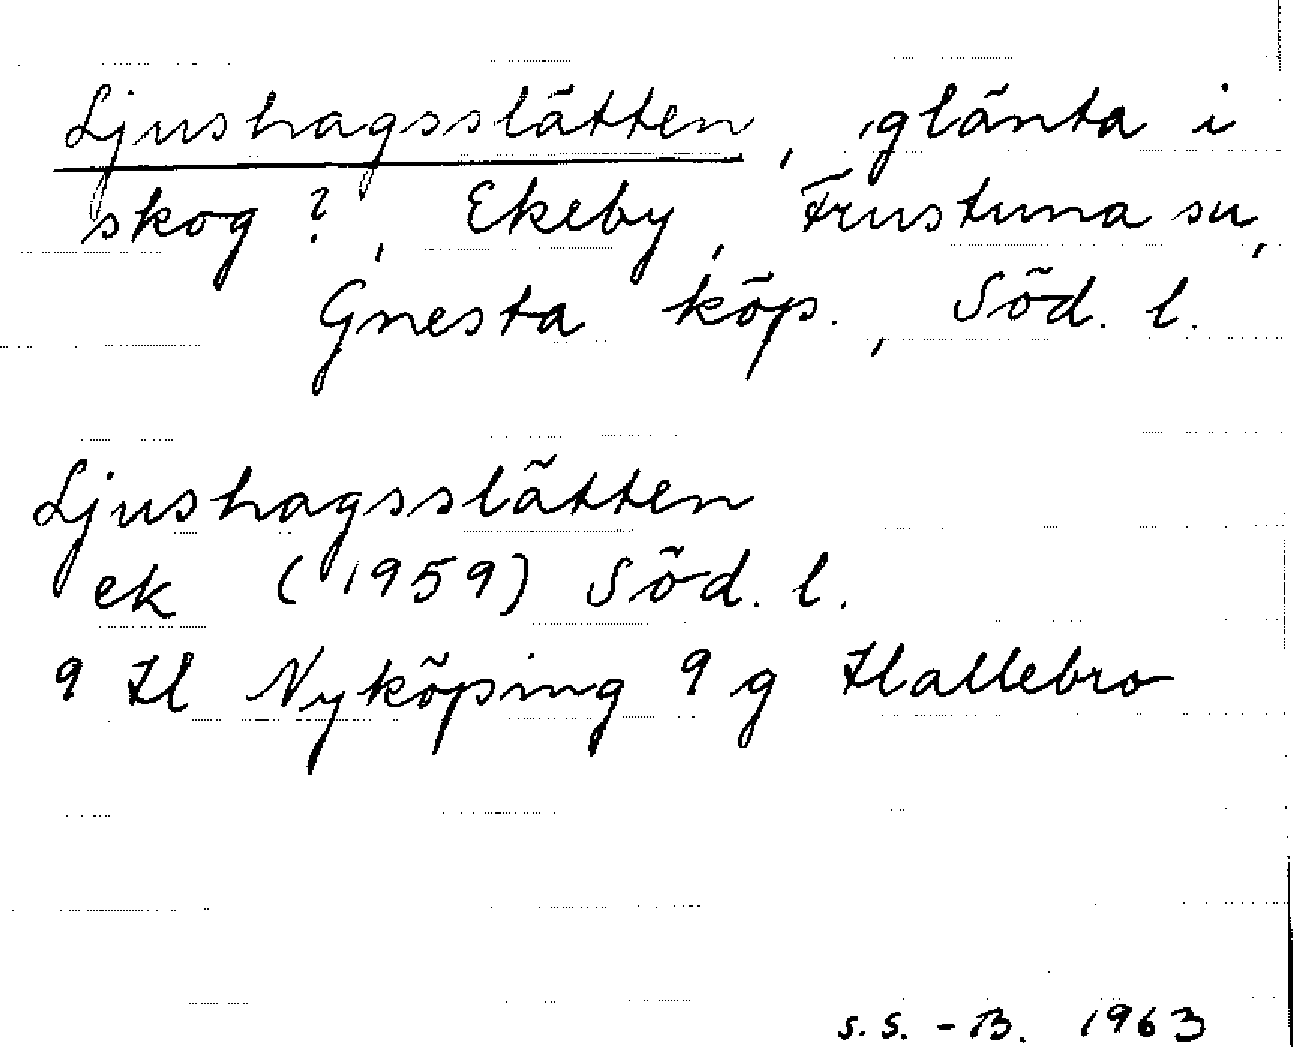 Ljushagsslätten, glänta i
skog?, Ekeby, Frustuna sn,
Gnesta köp., Söd. l.
Ljushagsslätten
ek (1959) Söd. l.
9 H Nyköping 9 g Hallebro
S.S. - B. 1963